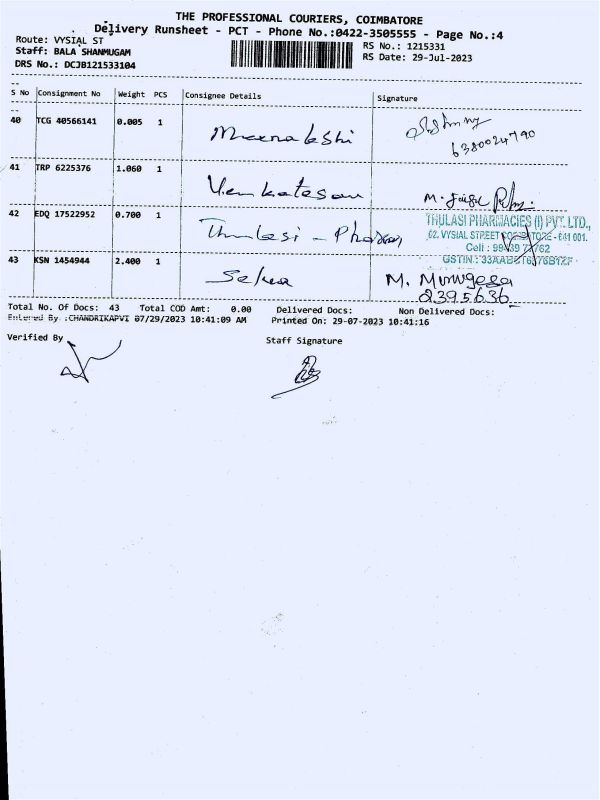 THE PROFESSIONAL COURIERS, COIMBATORE
Delivery Runsheet - PCT - Phone No.:0422-3505555 - Page No.:4
Route: VYSIAL ST
RS No.: 1215331
Staff: BALA SHANMUGAM
RS Date: 29-Jul-2023
DRS No.: DCJB121533104
S No Consignment No Weight PCS Consignee Details Signature
40 TCG 40566141 0.005 1 Meenakshi
6380024790
41 TRP 6225376 1.060 1 Venkatesan M.
42 EDQ 17522952 0.700 1 Thulasi - Pharm
THULASI PHARMACIES (I) PVT. LTD.,
62, VYSIAL STREET COIMBATORE - 641 001.
Cell :
GSTIN :
43 KSN 1454944 2.400 1 Sekar M. Murugesa
2395636
Total No. Of Docs: 43 Total COD Amt: 0.00 Delivered Docs: Non Delivered Docs:
Entered By :CHANDRIKAPVI 07/29/2023 10:41:09 AM Printed On: 29-07-2023 10:41:16
Verified By
Staff Signature